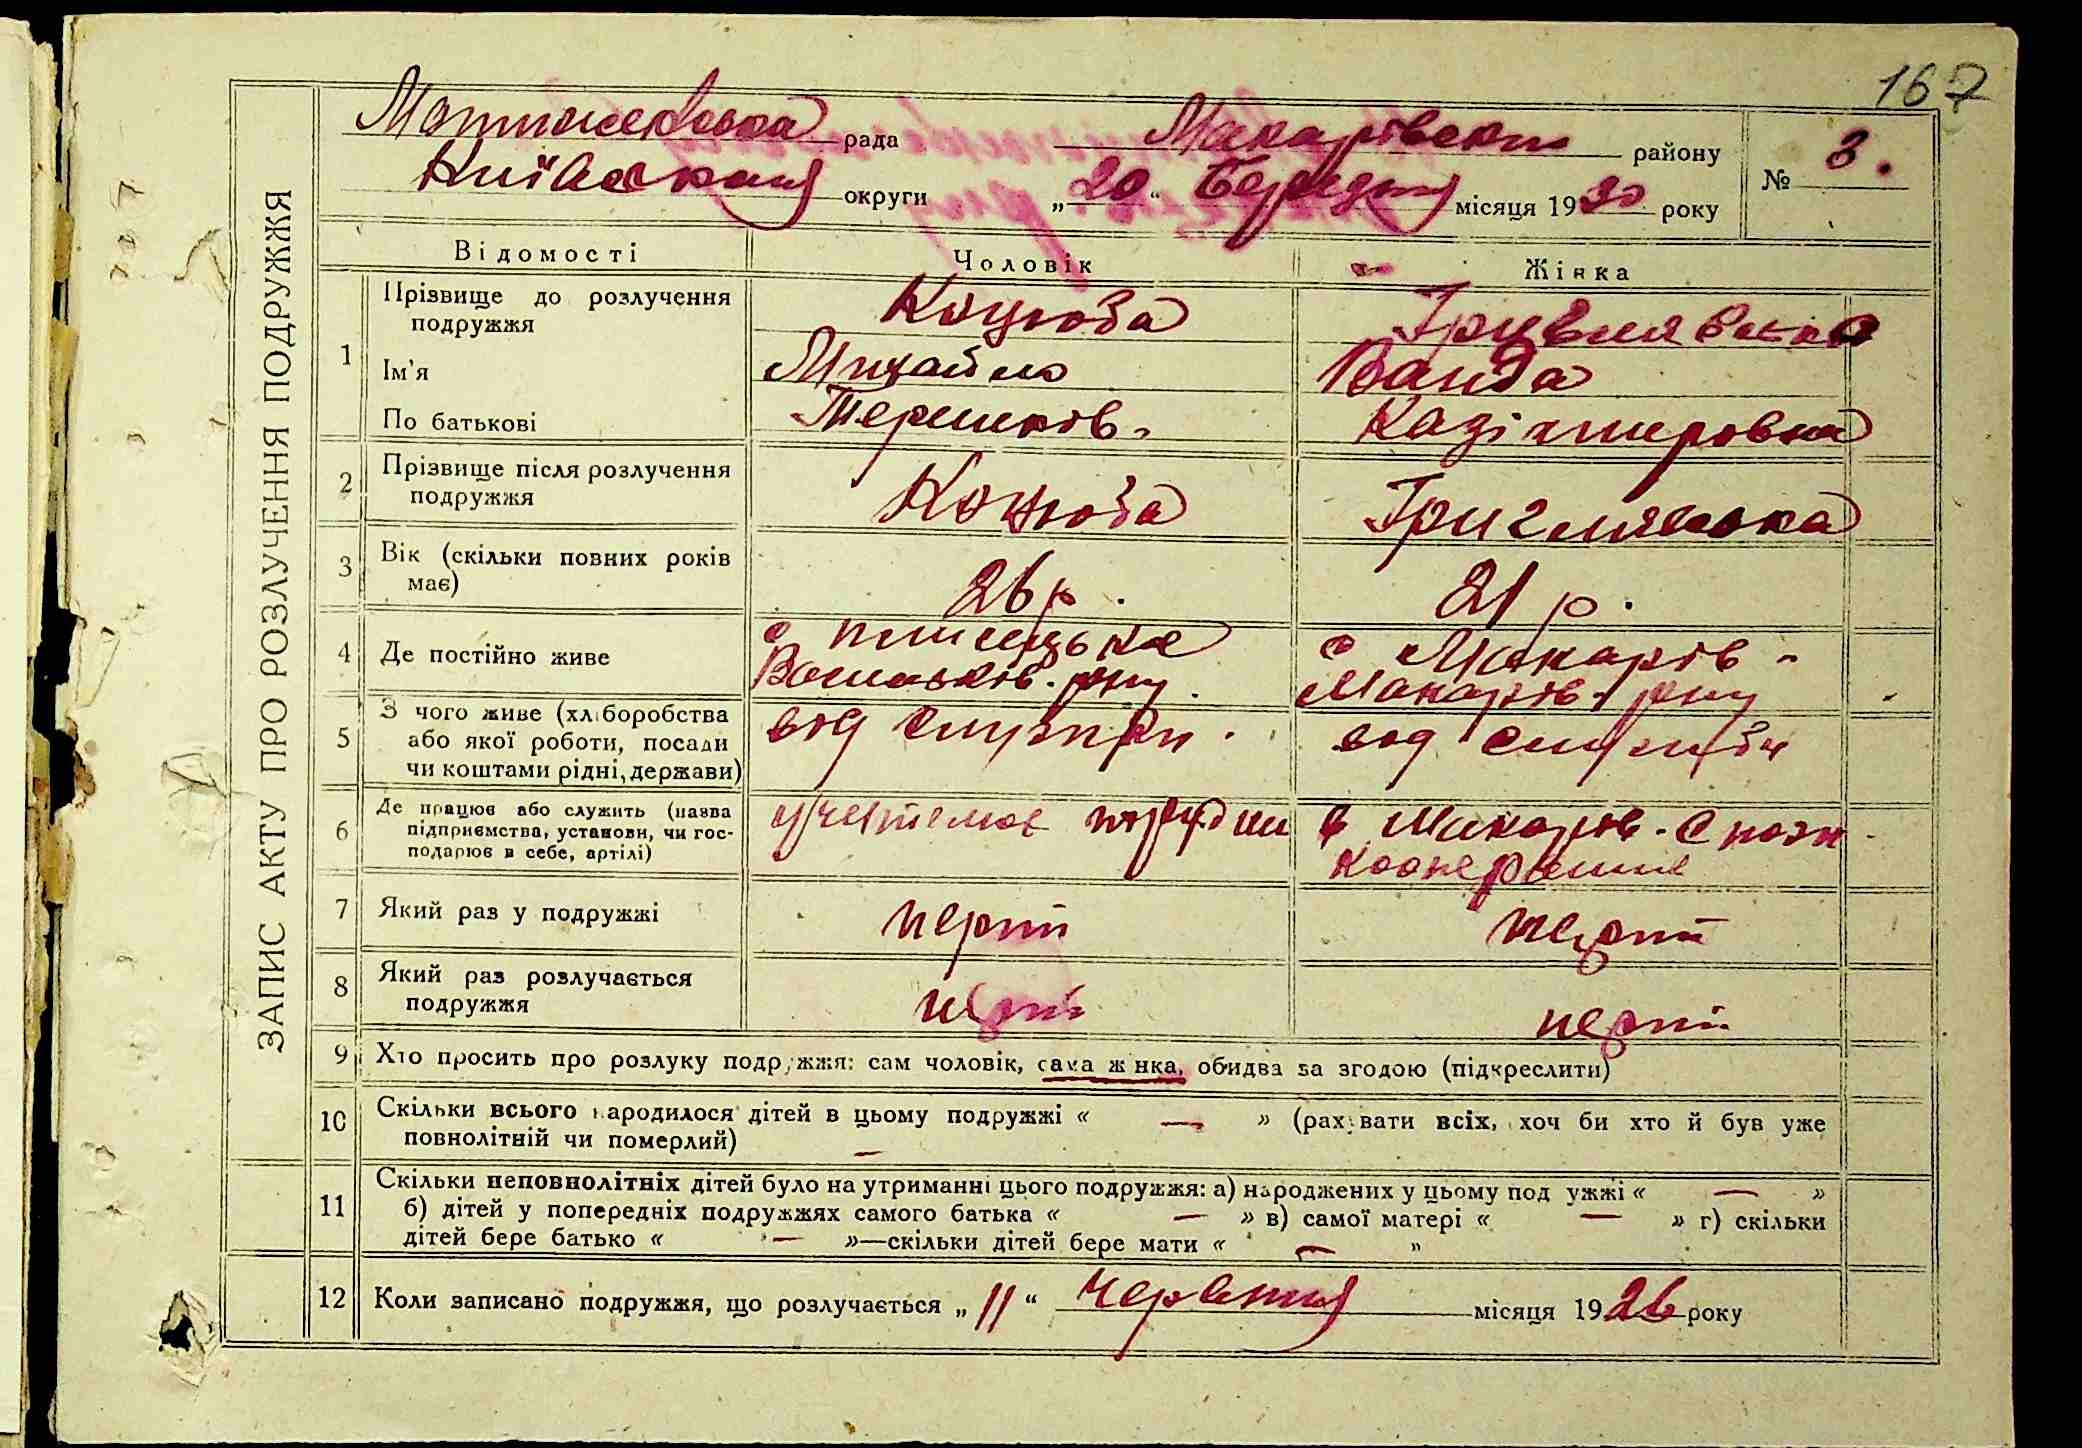 167
рада Макарівськ району № 3.
Київськая округи „20“ Березня місяця 1930 року
ЗАПИС АКТУ ПРО РОЗЛУЧЕННЯ ПОДРУЖЖЯ
Відомості Чоловік Жінка
1 Прізвище до розлучення подружжя Коцюба
Ім'я Михайло Ванда
По батькові Терешків. Казіміровна
2 Прізвище після розлучення подружжя Коцюба Григлявська
3 Вік (скільки повних років має) 26 р. 21 р.
4 Де постійно живе с Плисецьке с Макарів -
Васильків. р-ну. Макарів. р-ну
5 З чого живе (хліборобства або якої роботи, посади чи коштами рідні, держави) від служби. від служби
6 Де працює або служить (назва підприємства, установи, чи господарює в себе, артілі) учителює в Макарів. Спож
Кооперации
7 Який раз у подружжі перший перший
8 Який раз розлучається подружжя перший перший
9 Хто просить про розлуку подружжя: сам чоловік, сама жінка, обидва за згодою (підкреслити)
10 Скільки всього народилося дітей в цьому подружжі « — » (рахувати всіх, хоч би хто й був уже
повнолітній чи померлий) —
11 Скільки неповнолітніх дітей було на утриманні цього подружжя: а) народжених у цьому подружжі « — »
б) дітей у попередніх подружжях самого батька « — » в) самої матері « — » г) скільки
дітей бере батько « — »—скільки дітей бере мати « — "
12 Коли записано подружжя, що розлучається „11“ Червня місяця 1926 року